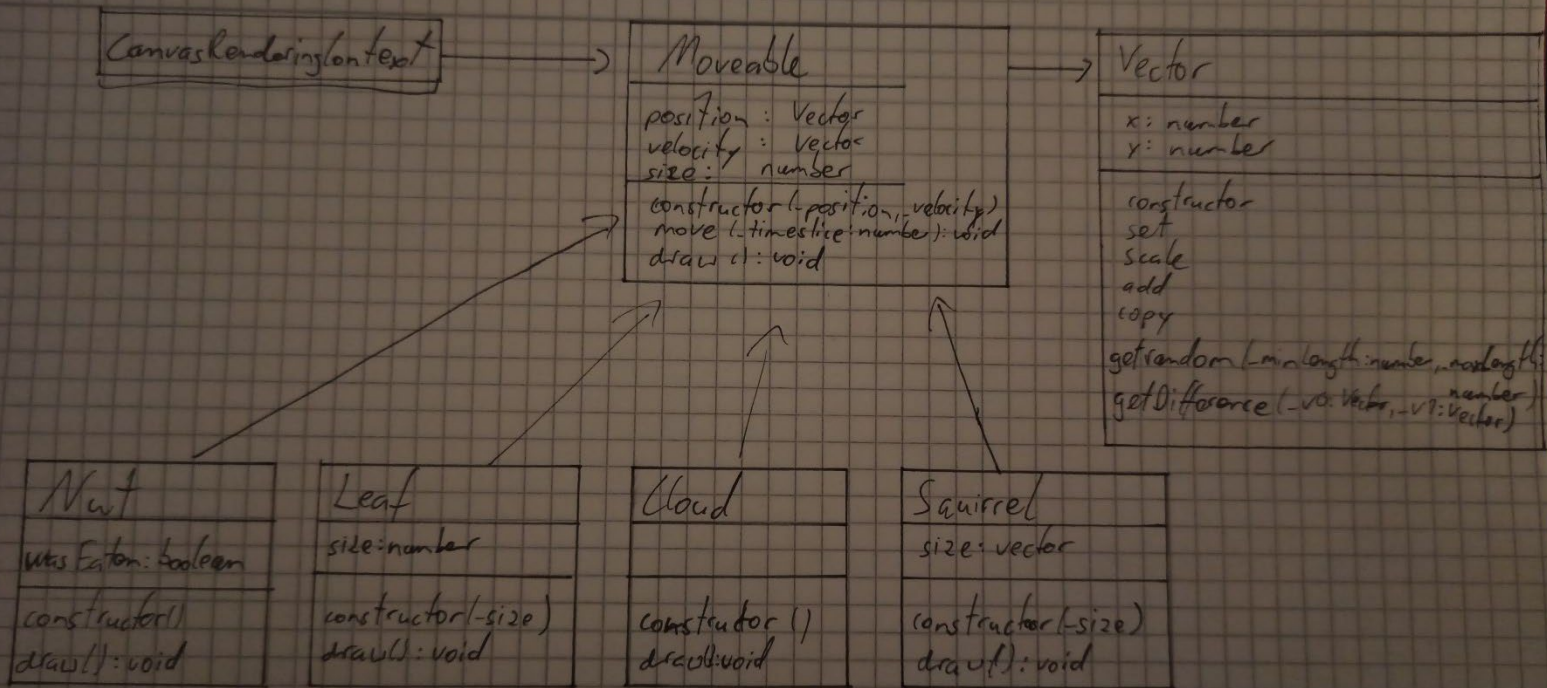 CanvasRenderingContext
Moveable
position: Vector
velocity: Vector
size: number
constructor(_position, _velocity)
move(_timeslice:number):void
draw():void
Vector
x: number
y: number
constructor
set
scale
add
copy
getrandom(_minlength:number, _maxlength:
number)
getDifference(_v0:Vector, _v1:Vector)
Nut
wasEaten:boolean
constructor()
draw():void
Leaf
size:number
constructor(_size)
draw():void
Cloud
constructor()
draw():void
Squirrel
size:vector
constructor(_size)
draw():void